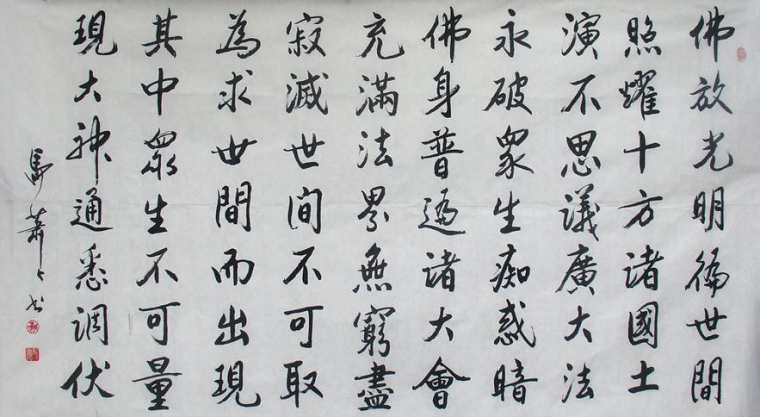 佛放光明徧世間
照耀十方諸國土
演不思議廣大法
永破衆生痴惑暗
佛身普遍諸大會
充滿法界無窮盡
寂滅世间不可取
為求世間而出現
其中眾生不可量
現大神通悉調伏
馬蕭々书